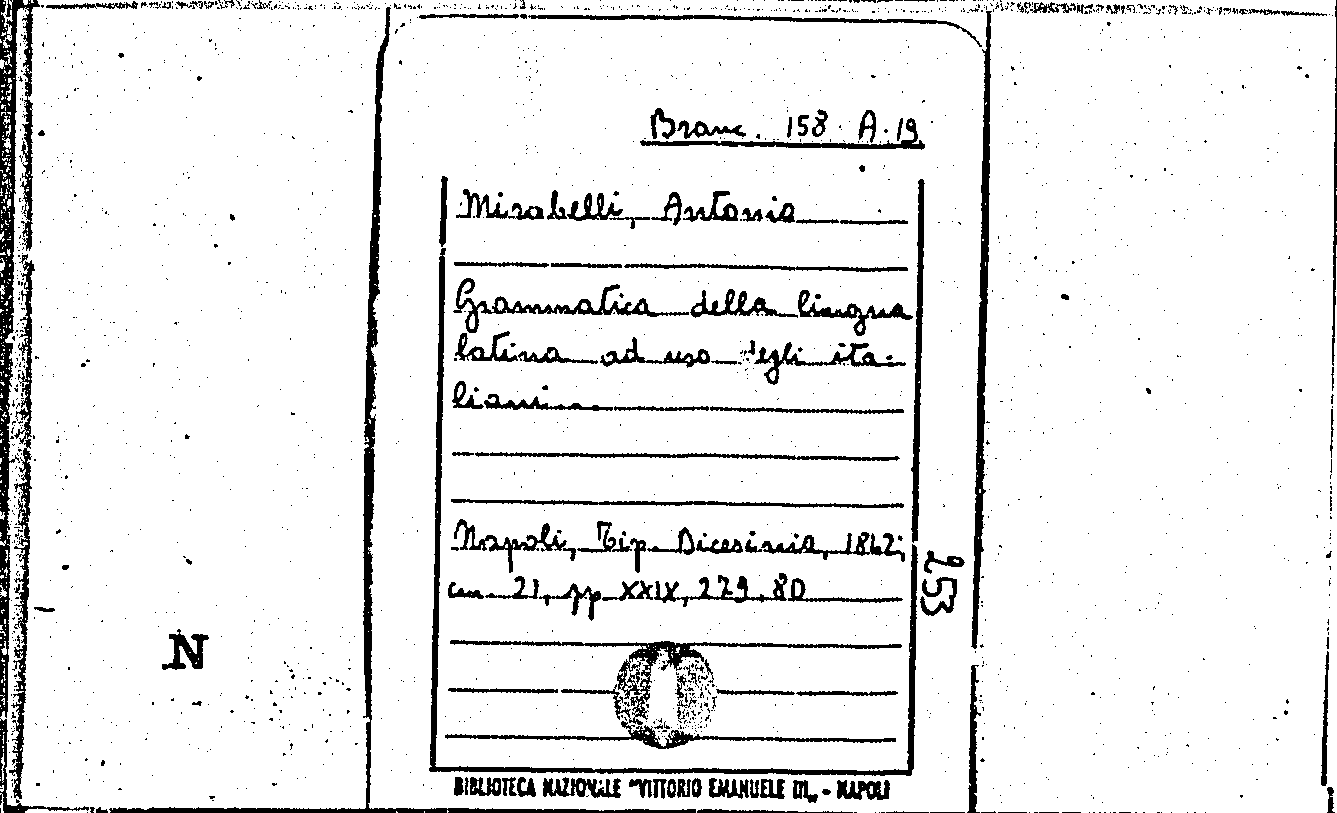 Branc. 158 A.19
Mirabelli, Antonio
Grammatica della lingua
latina ad uso degli ita-
liani...
Napoli, Tip. Dicesinia, 1842;
cm. 21, pp XXIX, 279. 80
253
N
BIBLIOTECA NAZIONALE "VITTORIO EMANUELE III„ - NAPOLI